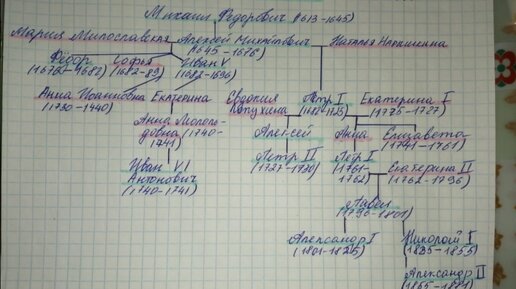 Михаил Фёдорович (1613-1645)
Мария Милославская Алексей Михайлович Наталья Нарышкина
(1645-1676)
Фёдор Софья Иван V
(1676-1682) (1682-89) (1682-1696)
Анна Иоанновна Екатерина Евдокия Пётр I Екатерина I
(1730-1740) Лопухина (1682-1725) (1725-1727)
Анна Леополь- Алексей Анна Елизавета
довна (1740- (1741-1761)
1741)
Пётр II Пётр I Екатерина II
(1727-1730) (1761- (1762-1796)
1762)
Иван VI
Антонович
(1740-1741)
Павел
(1796-1801)
Александр I Николай I
(1801-1825) (1825-1855)
Александр II
(1855-1881)